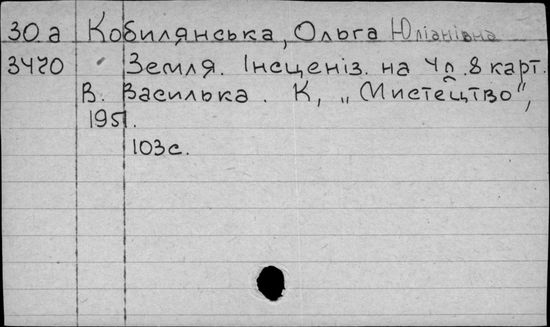 30.а Кобилянська, Ольга Юліанівна
3420 Земля. Інсценіз. на 4 д. 8 карт.
В. Василька. К, „Мистецтво",
1951.
103 с.